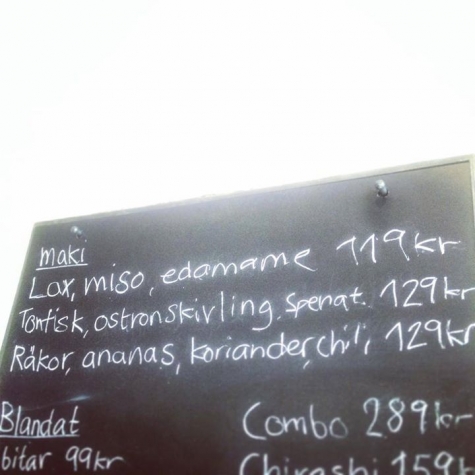 maki
Lax, miso, edamame 119kr
Tonfisk, ostronskivling, spenat. 129kr
Räkor, ananas, koriander, chili 129kr
Blandat
Combo 289kr
bitar 99kr
Chirashi 159kr